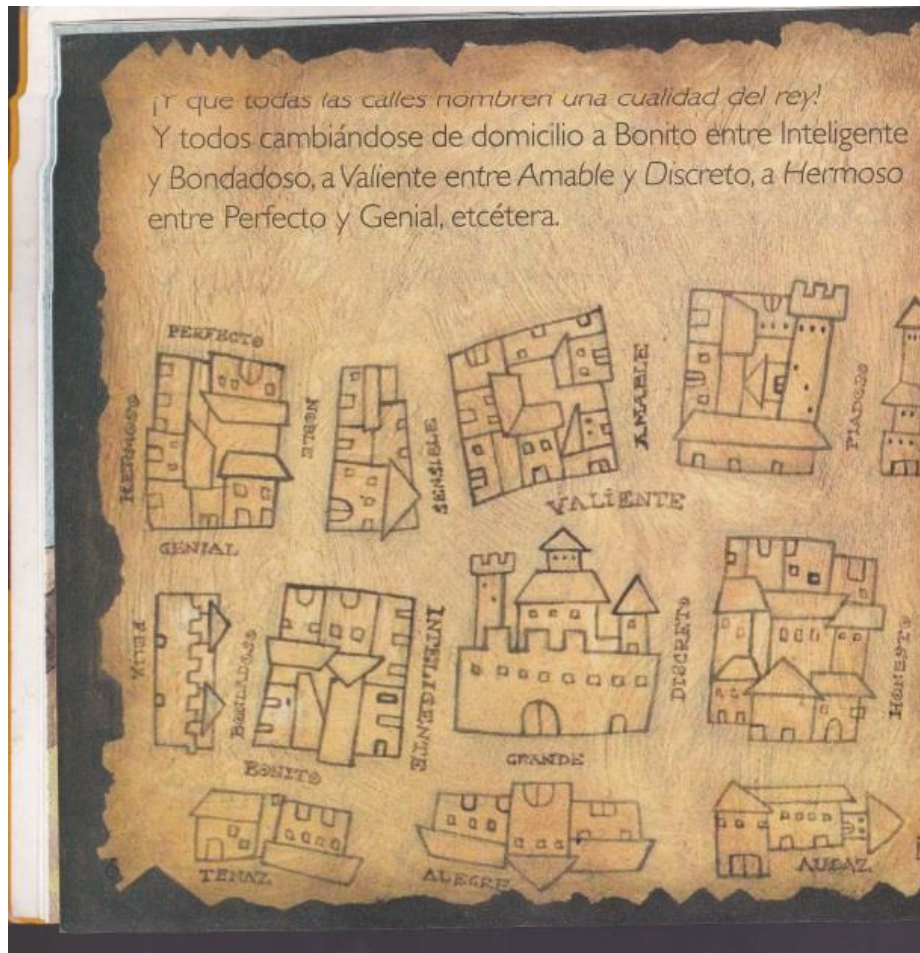 ¡Y que todas las calles nombren una cualidad del rey!
Y todos cambiándose de domicilio a Bonito entre Inteligente
y Bondadoso, a Valiente entre Amable y Discreto, a Hermoso
entre Perfecto y Genial, etcétera.
PERFECTO
HERMOSO
NOBLE
SENSIBLE
AMABLE
PIADOSO
VALIENTE
GENIAL
FELIZ
BONDADOSO
INTELIGENTE
DISCRETO
HONESTO
GRANDE
BONITO
TENAZ
ALEGRE
AUDAZ